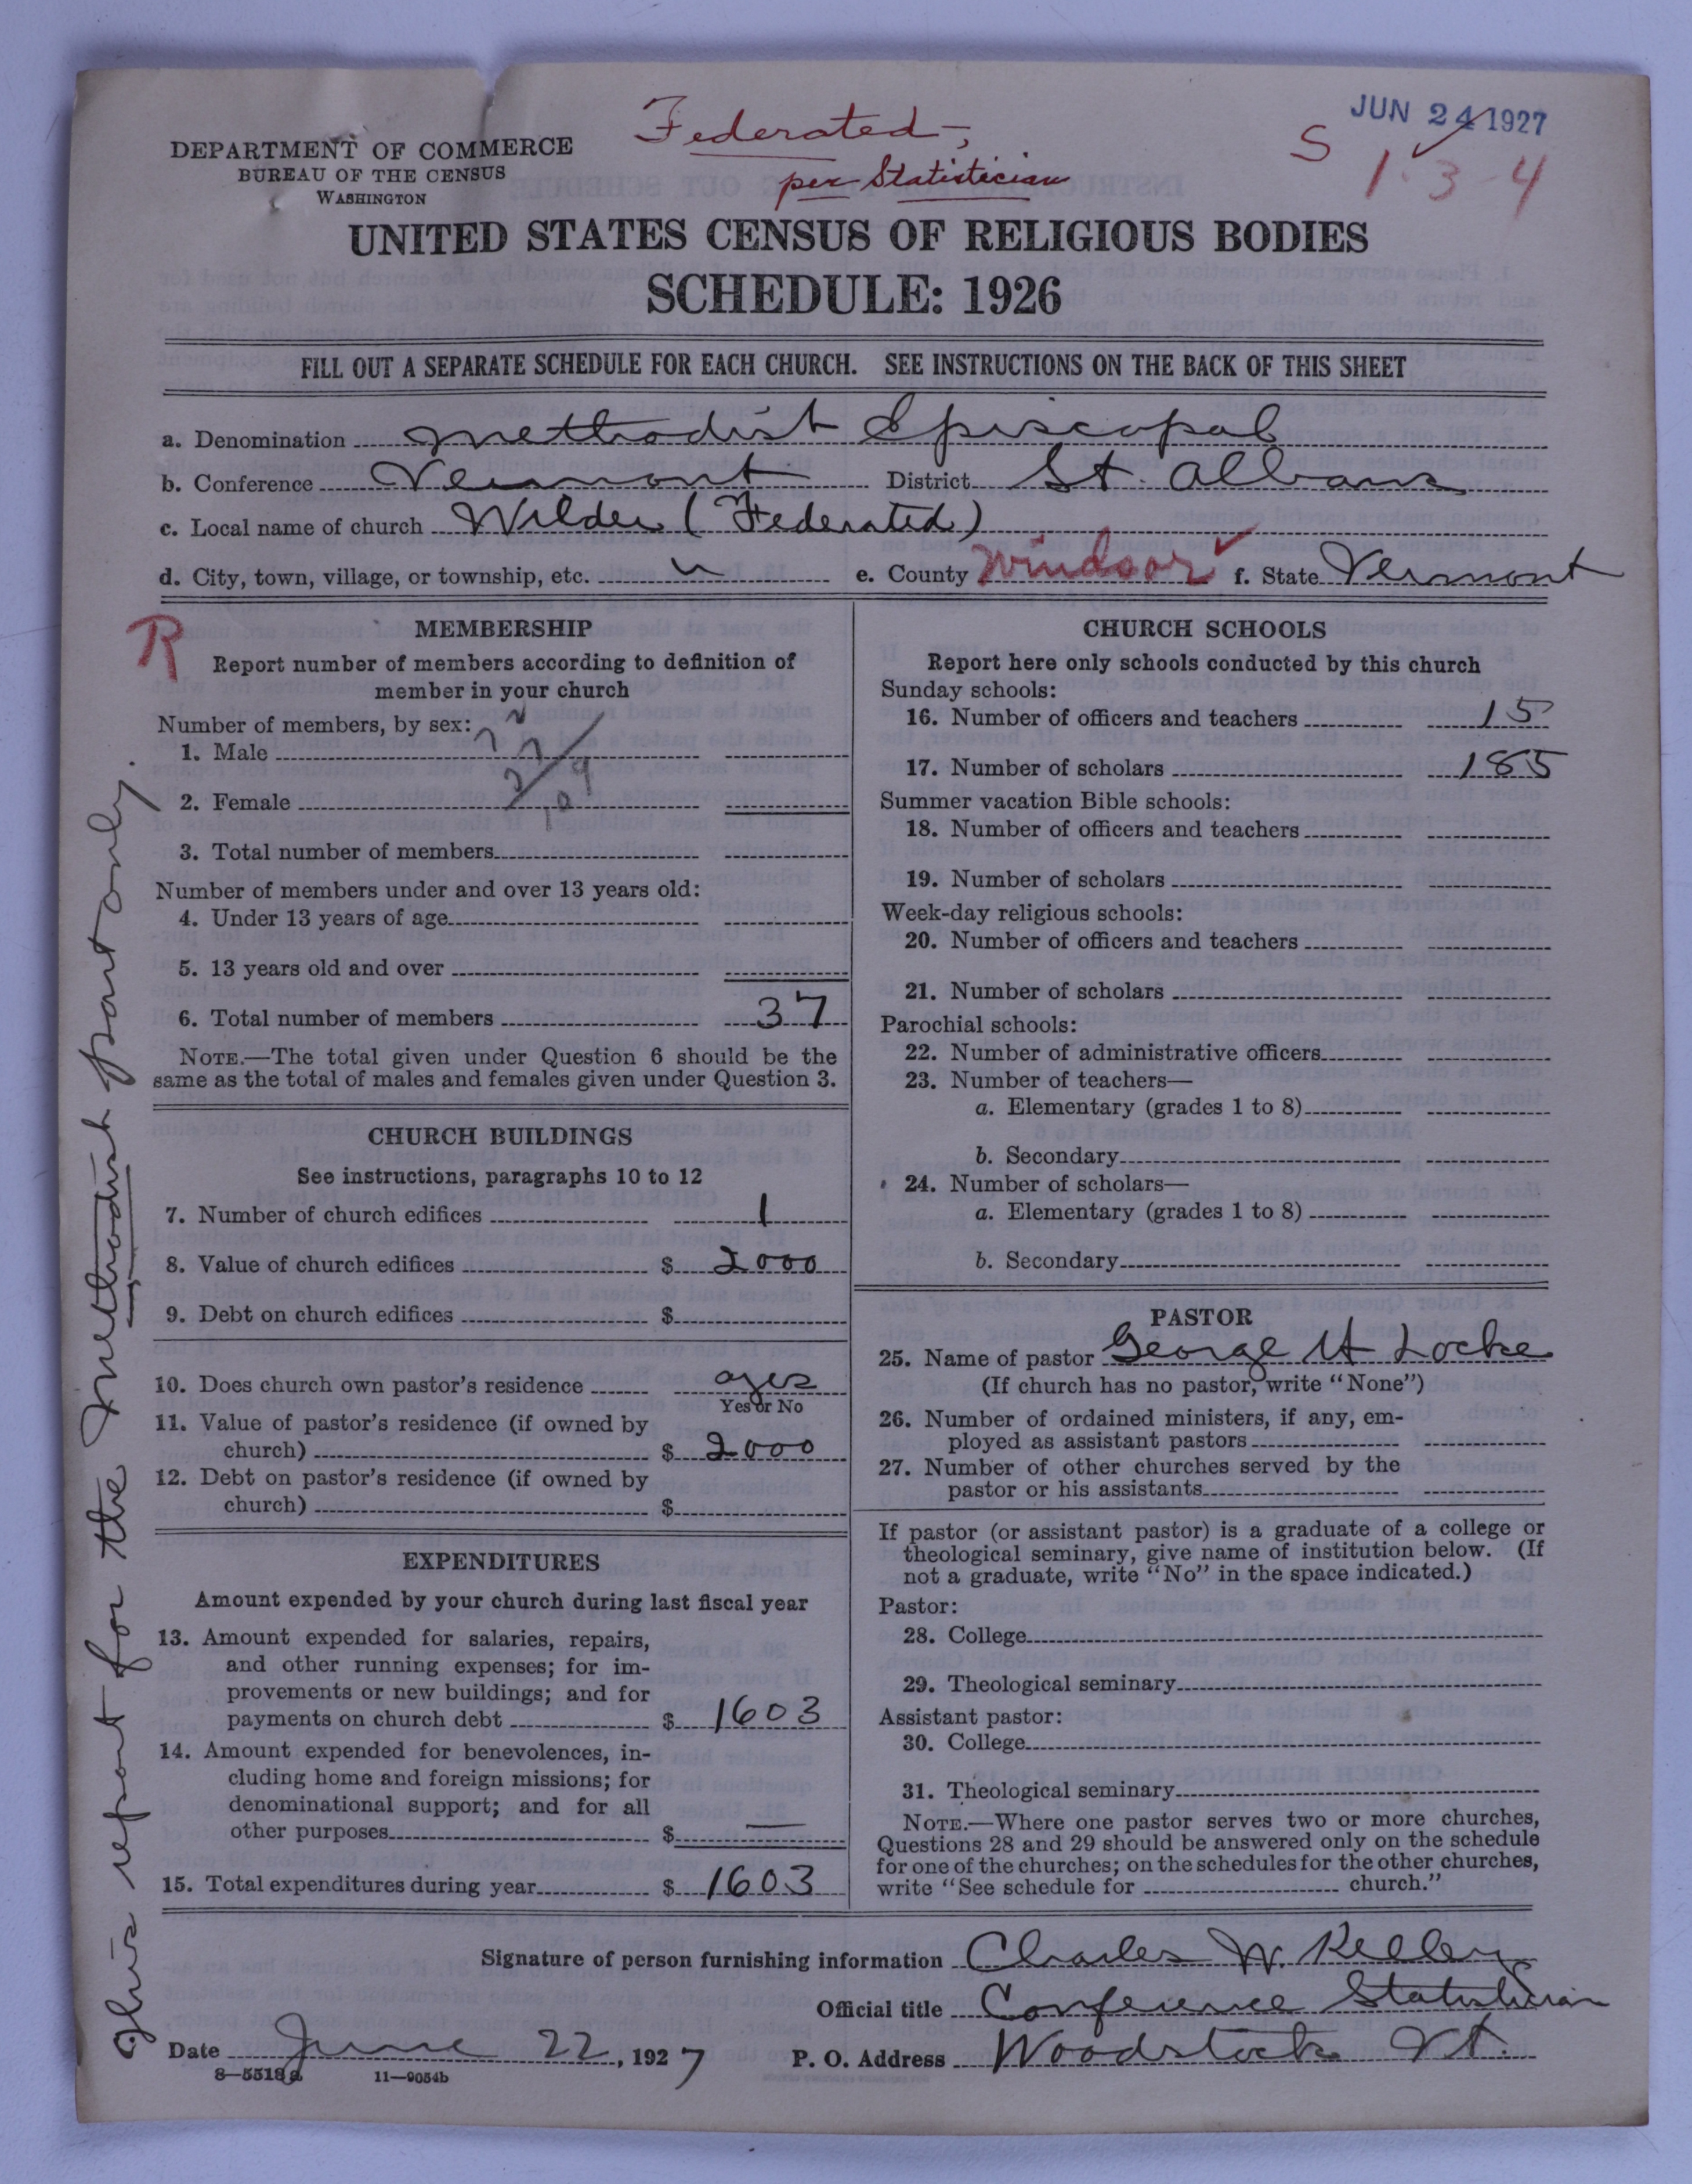 JUN 24 1927
Federated,
per Statistician
S
1-3-4
DEPARTMENT OF COMMERCE
BUREAU OF THE CENSUS
WASHINGTON
UNITED STATES CENSUS OF RELIGIOUS BODIES
SCHEDULE: 1926
FILL OUT A SEPARATE SCHEDULE FOR EACH CHURCH. SEE INSTRUCTIONS ON THE BACK OF THIS SHEET
a. Denomination Methodist Episcopal
b. Conference Vermont District St. Albans
c. Local name of church Wilder (Federated)
d. City, town, village, or township, etc. " e. County Windsor ✓ f. State Vermont
R
MEMBERSHIP
Report number of members according to definition of
member in your church
Number of members, by sex:
1. Male
2. Female
3. Total number of members
Number of members under and over 13 years old:
4. Under 13 years of age
5. 13 years old and over
6. Total number of members 37
NOTE.—The total given under Question 6 should be the
same as the total of males and females given under Question 3.
CHURCH BUILDINGS
See instructions, paragraphs 10 to 12
7. Number of church edifices 1
8. Value of church edifices $ 2000
9. Debt on church edifices $
10. Does church own pastor's residence yes
Yes or No
11. Value of pastor's residence (if owned by
church) $ 2000
12. Debt on pastor's residence (if owned by
church) $
EXPENDITURES
Amount expended by your church during last fiscal year
13. Amount expended for salaries, repairs,
and other running expenses; for im-
provements or new buildings; and for
payments on church debt $ 1603
14. Amount expended for benevolences, in-
cluding home and foreign missions; for
denominational support; and for all
other purposes $ —
15. Total expenditures during year $ 1603
CHURCH SCHOOLS
Report here only schools conducted by this church
Sunday schools:
16. Number of officers and teachers 15
17. Number of scholars 185
Summer vacation Bible schools:
18. Number of officers and teachers
19. Number of scholars
Week-day religious schools:
20. Number of officers and teachers
21. Number of scholars
Parochial schools:
22. Number of administrative officers
23. Number of teachers—
a. Elementary (grades 1 to 8)
b. Secondary
24. Number of scholars—
a. Elementary (grades 1 to 8)
b. Secondary
PASTOR
25. Name of pastor George H Locke
(If church has no pastor, write "None")
26. Number of ordained ministers, if any, em-
ployed as assistant pastors
27. Number of other churches served by the
pastor or his assistants
If pastor (or assistant pastor) is a graduate of a college or
theological seminary, give name of institution below. (If
not a graduate, write "No" in the space indicated.)
Pastor:
28. College
29. Theological seminary
Assistant pastor:
30. College
31. Theological seminary
NOTE.—Where one pastor serves two or more churches,
Questions 28 and 29 should be answered only on the schedule
for one of the churches; on the schedules for the other churches,
write "See schedule for church."
Signature of person furnishing information Charles W. Kelley
Official title Conference Statistician
Date June 22, 1927 P. O. Address Woodstock Vt.
8—5518a 11—9054b
This report for the Methodist part only.